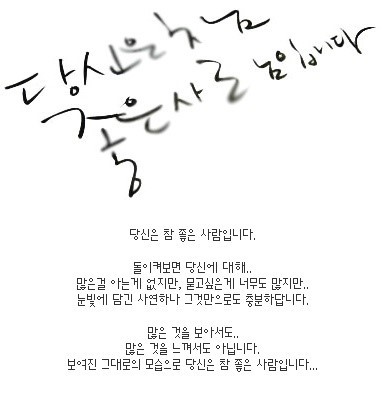 당신은 참
좋은 사람입니다
당신은 참 좋은 사람입니다.
돌이켜보면 당신에 대해..
많은걸 아는게 없지만, 묻고싶은게 너무도 많지만..
눈빛에 담긴 사연하나 그것만으로도 충분하답니다.
많은 것을 보아서도..
많은 것을 느껴서도 아닙니다.
보여진 그대로의 모습으로 당신은 참 좋은 사람입니다...